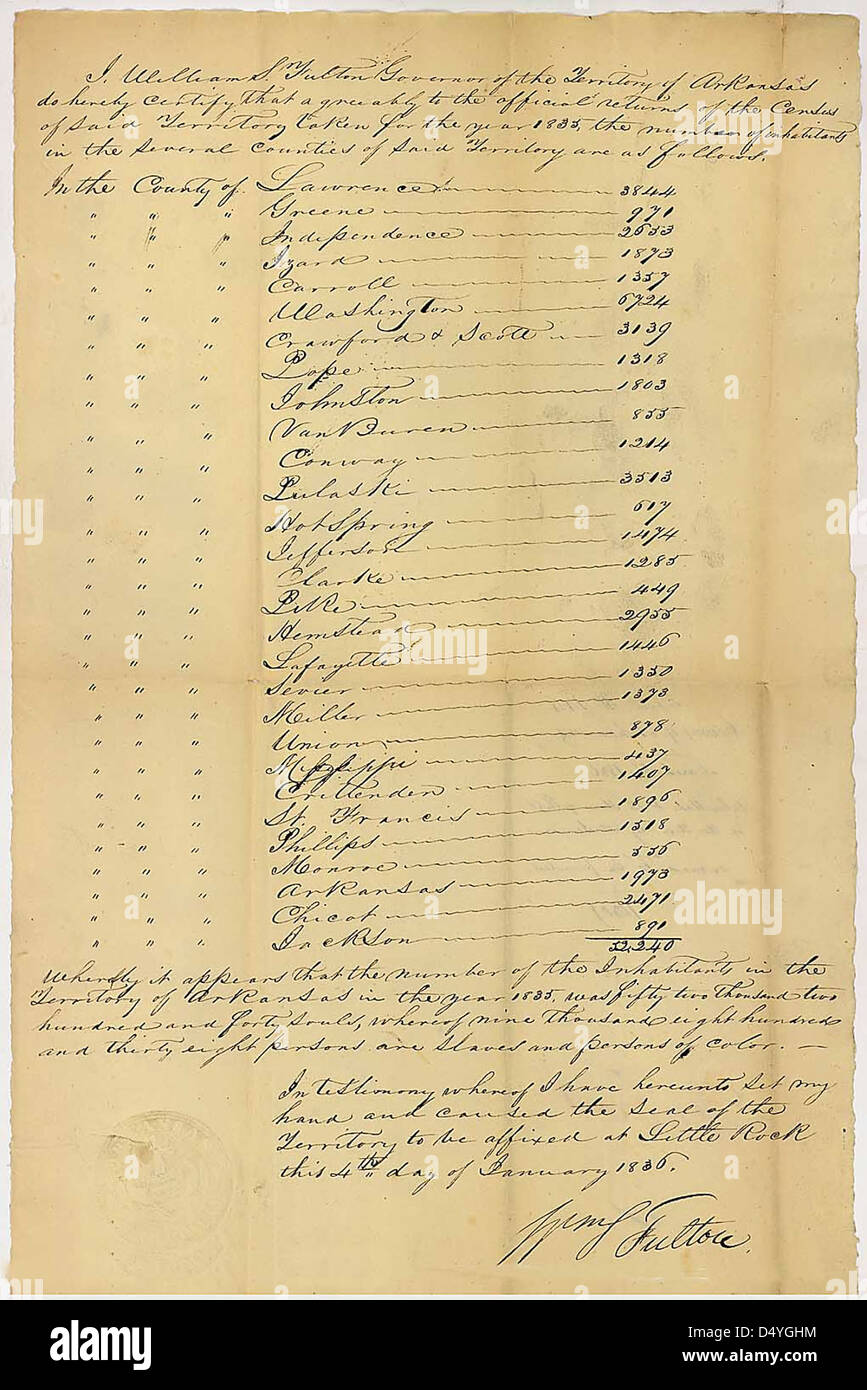 I. William S. Fulton Governor of the Territory of Arkansas
do hereby certify that agreeably to the official returns of the Census
of said Territory taken for the year 1835, the number of inhabitants
in the several Counties of said Territory are as follows.
In the County of Lawrence 3844
" " " Greene 971
" " " Independence 2653
" " " Izard 1873
" " " Carroll 1357
" " " Washington 6724
" " " Crawford & Scott 3139
" " " Pope 1318
" " " Johnston 1803
" " " Van Buren 855
" " " Conway 1214
" " " Pulaski 3513
" " " Hot Spring 617
" " " Jefferson 1474
" " " Clarke 1285
" " " Pike 449
" " " Hemstead 2955
" " " Lafayette 1446
" " " Sevier 1350
" " " Miller 1373
" " " Union 878
" " " Mississippi 437
" " " Crittenden 1407
" " " St. Francis 1896
" " " Phillips 1518
" " " Monroe 556
" " " Arkansas 1973
" " " Chicot 2471
" " " Jackson 891
52,240
Whereby it appears that the number of the Inhabitants in the
Territory of Arkansas in the year 1835, was fifty two thousand two
hundred and forty souls, whereof nine thousand eight hundred
and thirty eight persons are slaves and persons of color.
In testimony whereof I have hereunto set my
hand and caused the seal of the
Territory to be affixed at Little Rock
this 4th day of January 1836.
Wm S Fulton
alamy
Image ID: D4YGHM
www.alamy.com